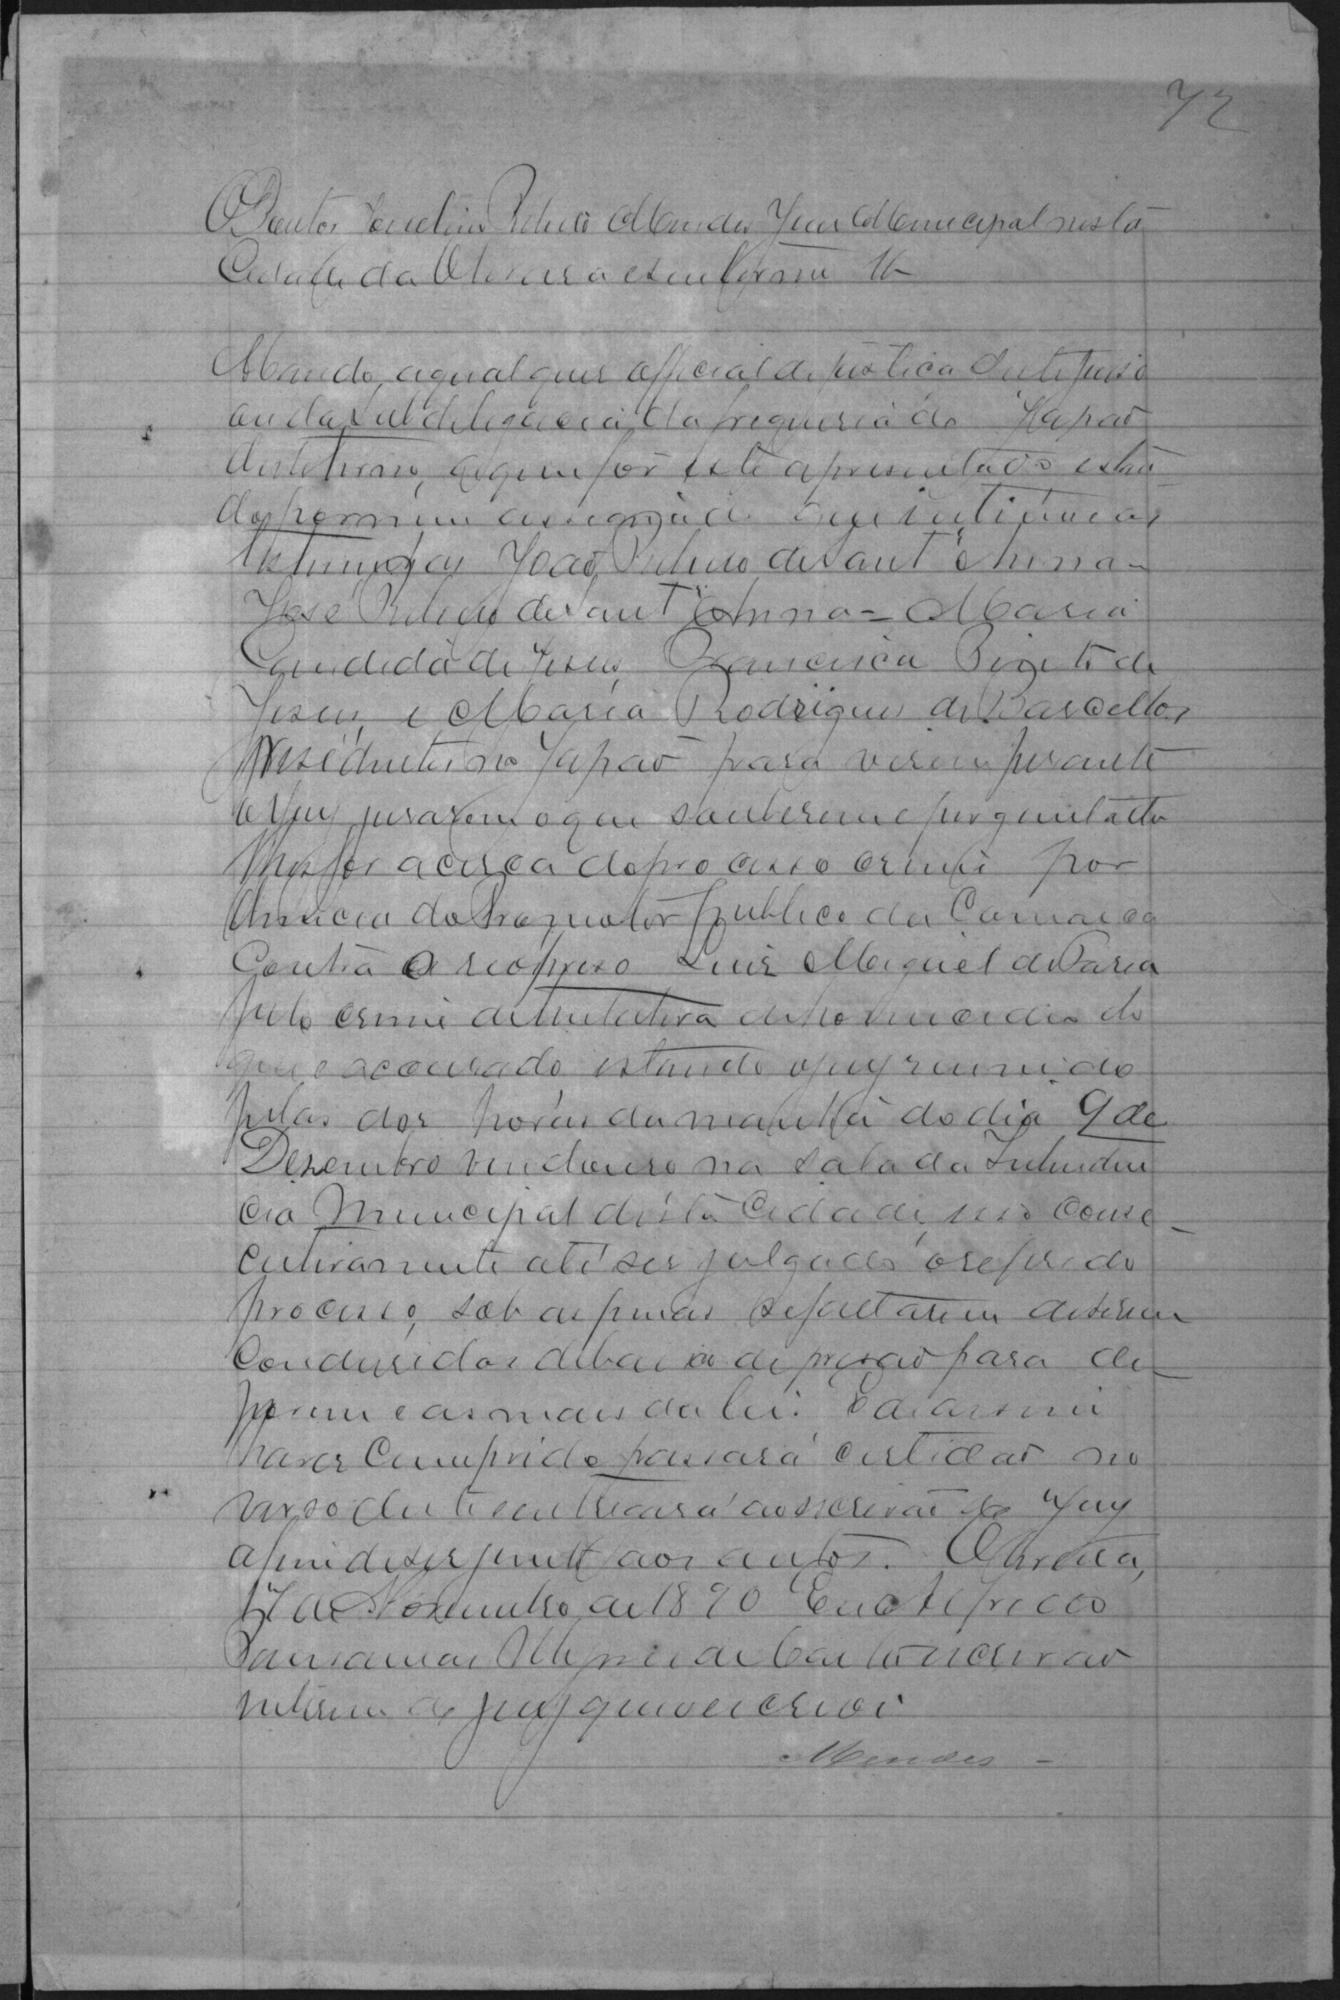 72
O Doutor Ribeiro Mendes Juiz Municipal nesta
Cidade da Oliveira e seu termo &
Mando, a qualquer official de justica deste juiso
ou da Subdelegacia da freguesia do Japaõ
deste termo, a quem for este apresentado estan-
do por mim assignado que intime as
testemunhas João Ribeiro de Sant'Anna -
José Ribeiro de Sant'Anna = Maria
Candida de Jesus, Francisca de
Jesus, e Maria Rodrigues de Barcellos
residentes no Japaõ para virem perante
o juiz jurarem o que souberem e perguntado
lhes for acerca do processo crime por
denuncia do Promotor publico da Comarca
Contra o reo preso Luiz Miguel de Faria
pelo crime de tentativa de homicidio de
que é accusado estando o juiz reunido
pelas dez horas da manhã do dia 9 de
Dezembro vindouro na sala da Intenden
cia Municipal desta Cidade, e conse-
cutivamente até ser julgado o referido
processo, sob as penas se faltarem de serem
Conduzidos debaixo de prizaõ para de-
porem e as mais da lei. E de assim
haver Cumprido passará certidaõ no
verso deste entregará ao escrivaõ do Juiz
afim de ser junto aos autos. Oliveira,
17 de Novembro de 1890 Eu Alfredo
de Castro escrivaõ
interino do juiz que o escrevi
Mendes -